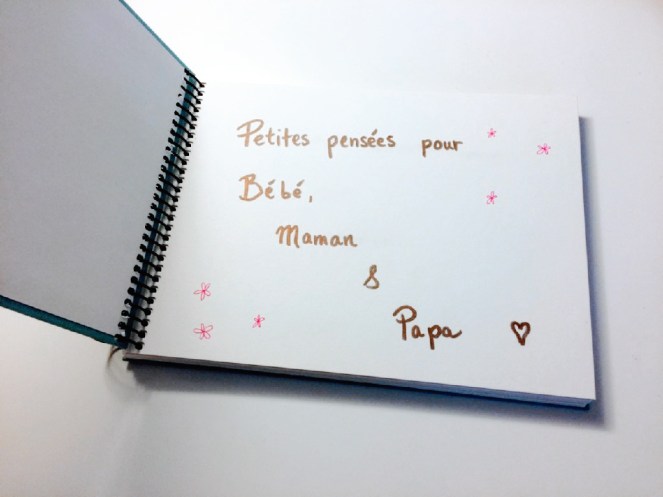 Petites pensées pour
Bébé,
Maman
&
Papa ♡